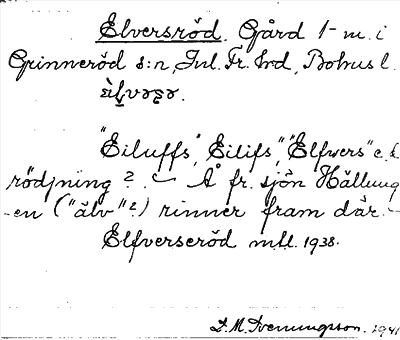 Elversröd. Gård 1 m. i
Grinneröd s:n, Inl. Fr. hrd, Bohus l.
"Eiluffs", Eilifs", "Elfvers" e. d.
rödjning?. – Å fr. sjön Hällung
-en ("älv"?) rinner fram där. –
Elfverseröd mtl. 1938.
D. M. Svenungsson. 1941